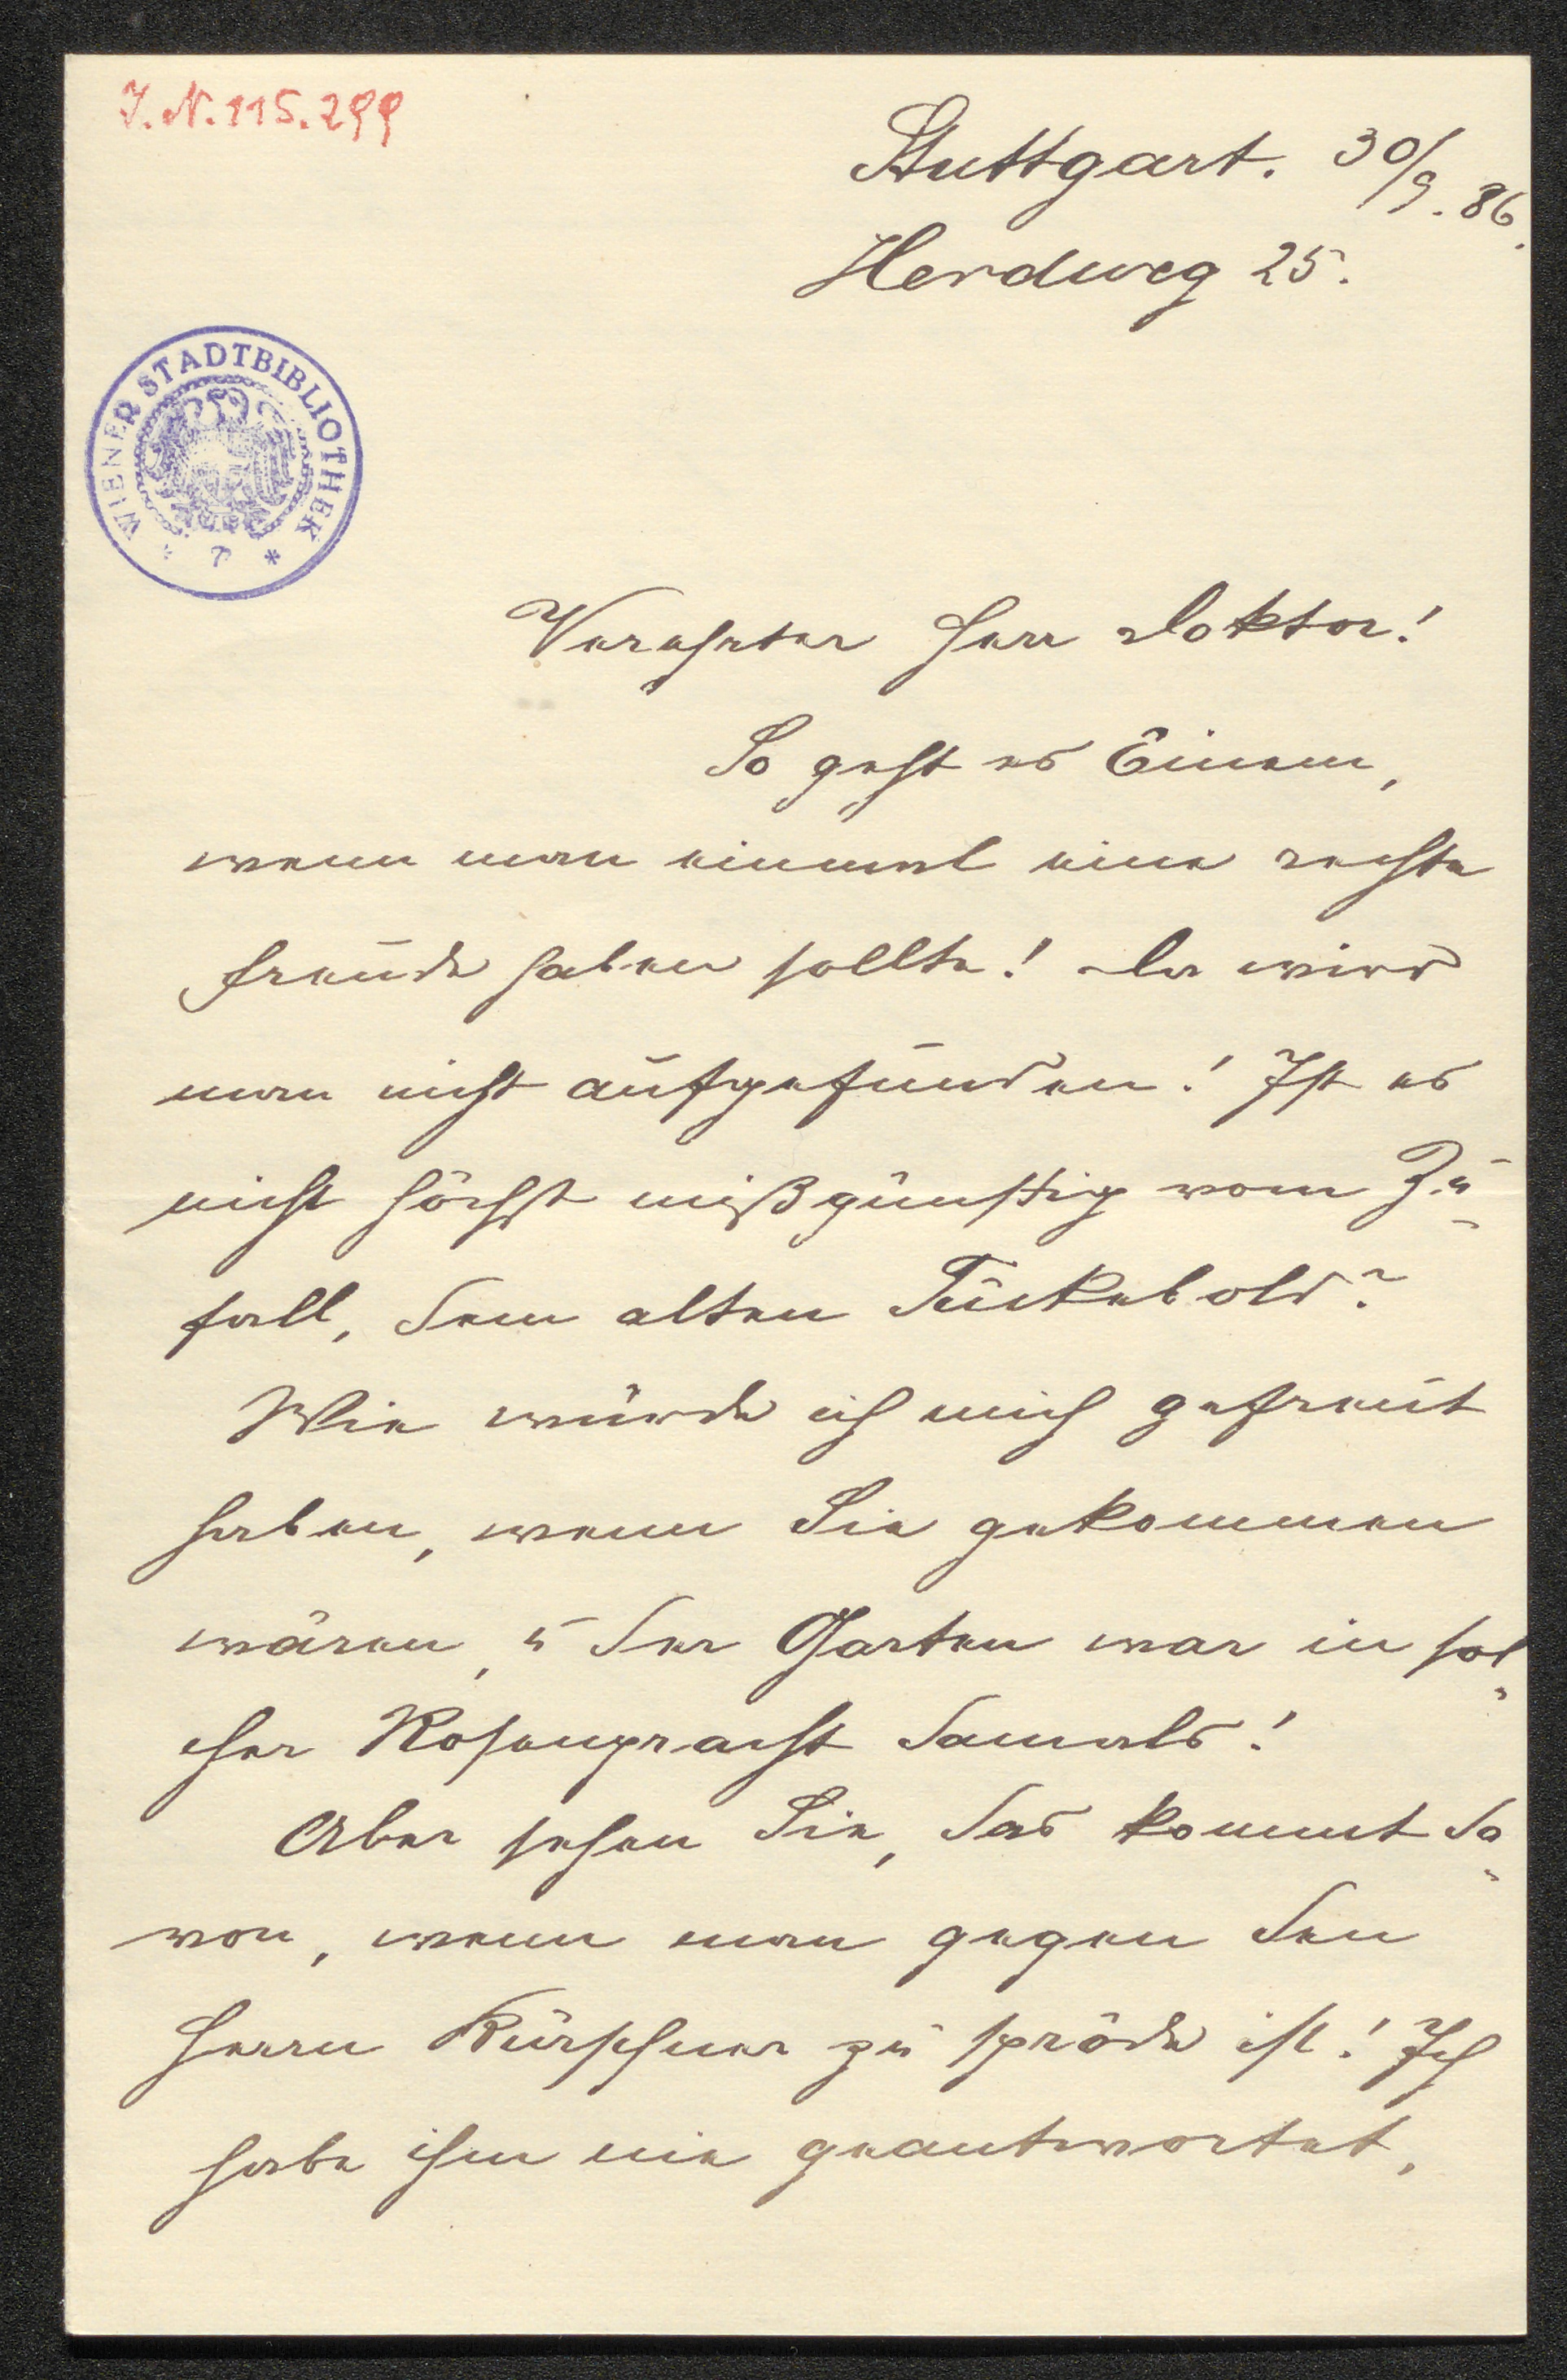 J. N. 115.299
Stuttgart. 30/9. 86.
Herdweg 25.
WIENER STADTBIBLIOTHEK
Verehrter Herr Doktor!
So geht es Einem,
wenn man einmal eine rechte
Freude haben sollte! Da wird
man nicht aufgefunden! Ist es
nicht höchst mißgünstig vom Zu-
fall, dem alten Tückebold?
Wie würde ich mich gefreut
haben, wenn Sie gekommen
wären, u der Garten war in sol-
cher Rosenpracht damals!
Aber sehen Sie, das kommt da-
von, wenn man gegen den
Herrn Kürschner zu spröde ist! Ich
habe ihm nie geantwortet,